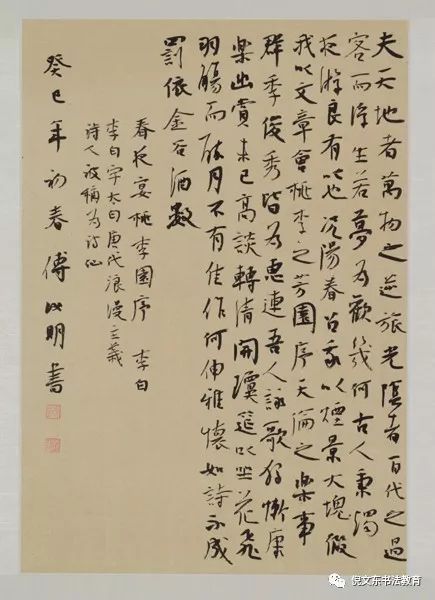 夫天地者萬物之逆旅光陰者百代之過
客而浮生若夢為歡幾何古人秉燭
夜游良有以也況陽春召我以煙景大塊假
我以文章會桃李之芳園序天倫之樂事
群季俊秀皆為惠連吾人詠歌獨慚康
樂幽賞未已高談轉清開瓊筵以坐花飛
羽觴而醉月不有佳作何伸雅懷如詩不成
罰依金谷酒數
春夜宴桃李園序 李白
李白字太白唐代浪漫主義
詩人被稱為詩仙
癸巳年初春傅明書
倪文东书法教育